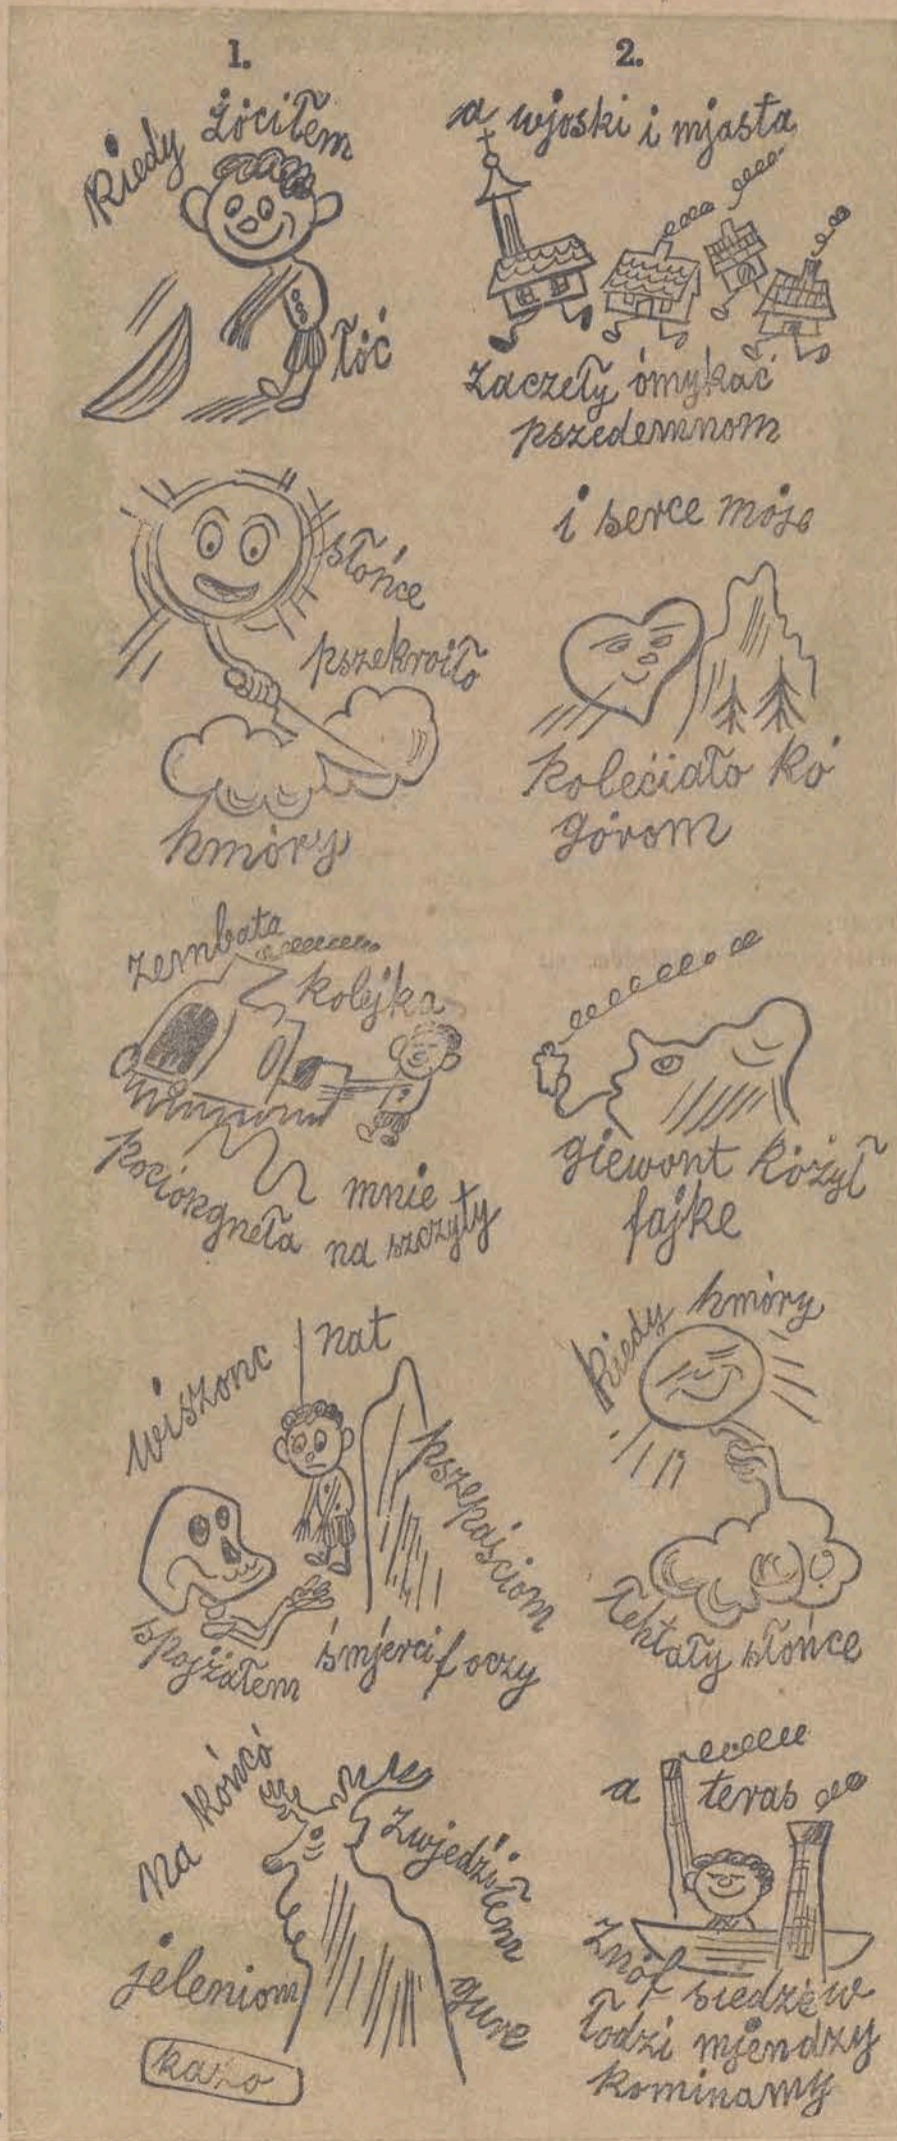 1.
Kiedy żóciłem
łóć
słońce
pszekroiło
hmóry
zembata
kolejka
pociongneła mnie
na szczyty
wiszonc nat
pszepaściom
spojżałem śmjerci f oczy
na kóńcó
zwjedziłem
jeleniom
gure
kazo
2.
a wjoski i mjasta
zaczeły ómykać
pszedemnom
i serce moje
poleciało kó
górom
giewont kóżył
fajke
kiedy hmóry
łehtały słońce
a teras
znóf siedze w
łodzi mjendzy
kominamy